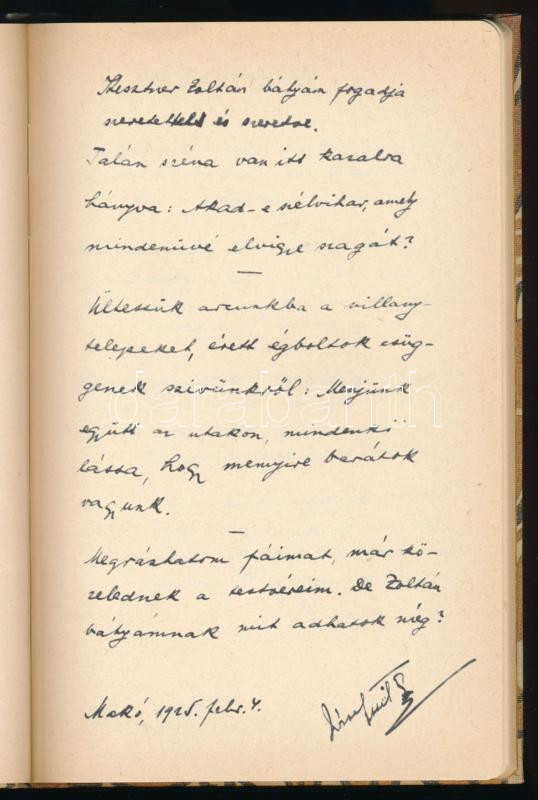 Kesztner Zoltán bátyám fogadja
szeretettel és szeretve.
Talán széna van itt kazalra
hányva: Akad-e szélvihar, amely
mindenüvé elvigye szagát?
—
Ültessük arcunkba a villany-
telepeket, érett égboltok csüg-
genek szivünkről: Menjünk
együtt az utakon, mindenki
lássa, hogy mennyire barátok
vagyunk.
—
Megrázhatom fáimat, már kö-
zelednek a testvéreim. De Zoltán
bátyámnak mit adhatok még?
Makó, 1925. febr. 4.
József Attila
darabanth